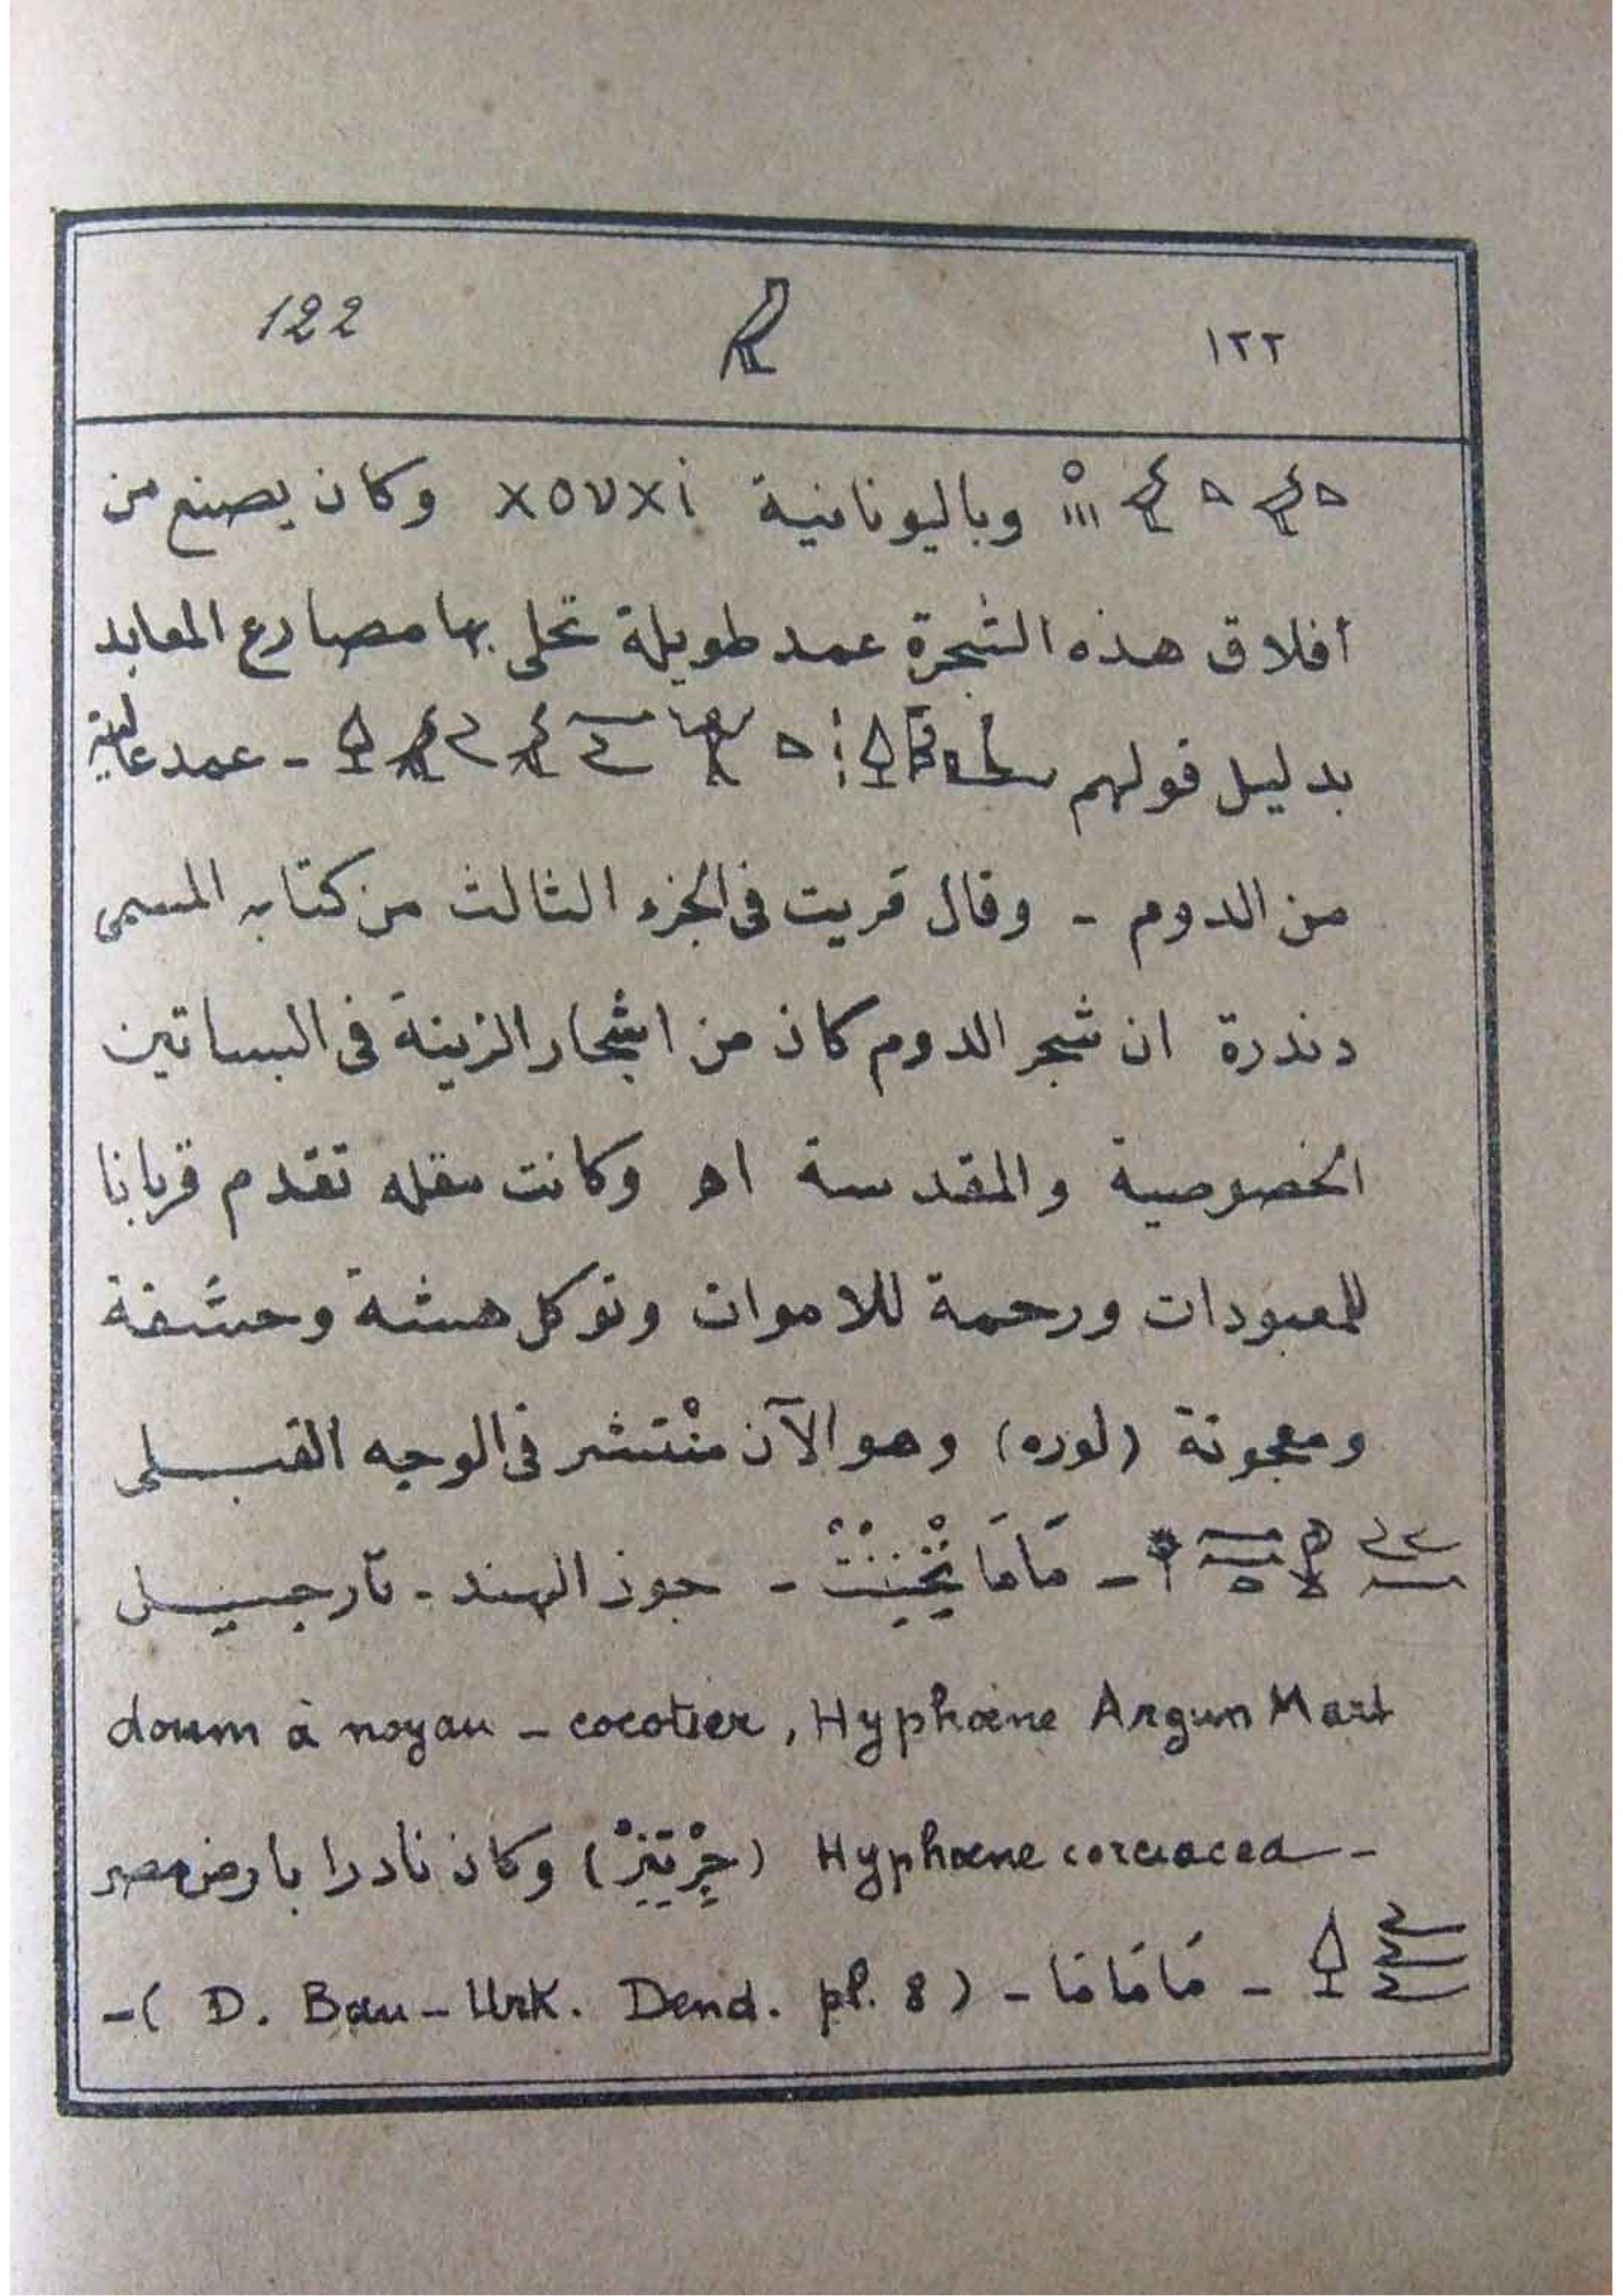 122 ١٢٢
وباليونانية xovxi وكان يصنع من
أفلاق هذه الشجرة عمد طويلة تحلى بها مصارع المعابد
بدليل قولهم - عمد عالية
من الدوم - وقال مريت فى الجزء الثالث من كتابه المسمى
دندرة ان شجر الدوم كان من اشجار الزينة فى البساتين
الخصوصية والمقدسة اﻫ وكانت مقله تقدم قربانا
للمعبودات ورحمة للاموات وتوكل هشه وحشفة
ومعجونة (لوره) وهو الآن منْتشر فى الوجه القبلى
- مَامَا - جوز الهند - نارجيل
doum à noyau - cocotier, Hyphæne Argun Mart
Hyphæne coreiacea - وكان نادرا بارض مصر
- مَامَامَا - (D. Bau-Urk. Dend. pl. 8) -